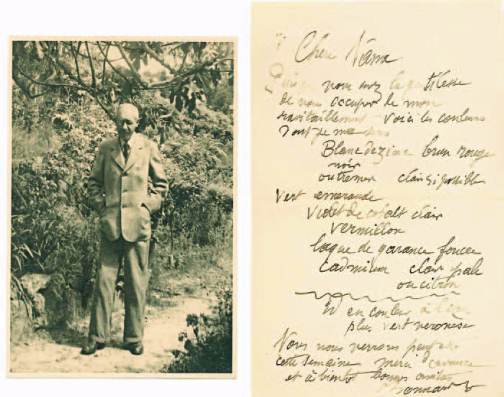 Cher Nann
vous avez la gentillesse
de vous occuper de mon
ravitaillement voici les couleurs
dont je me sers
Blanc de zinc brun rouge
noir
outremer clair si possible
vert emeraude
Violet de cobalt clair
Vermillon
laque de garance foncee
cadmium clair pale
ou citron
et en couleur à l'eau
plus vert veronese
Nous nous verrons
cette semaine merci d'avance
et à bientôt bonnes amitiés
Bonnard